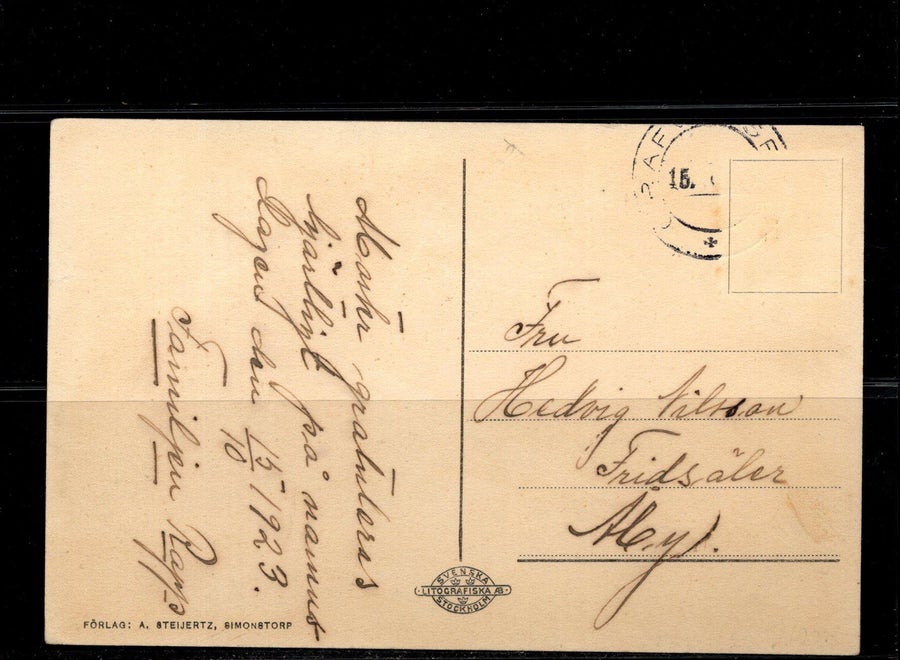 gratuleras
hjärtligt på namns
dagen den 15/10 1923.
Familjen Rapp
Fru
Hedvig Nilsson
Fridsäler
15.
SVENSKA
LITOGRAFISKA AB
STOCKHOLM
FÖRLAG: A. STEIJERTZ, SIMONSTORP